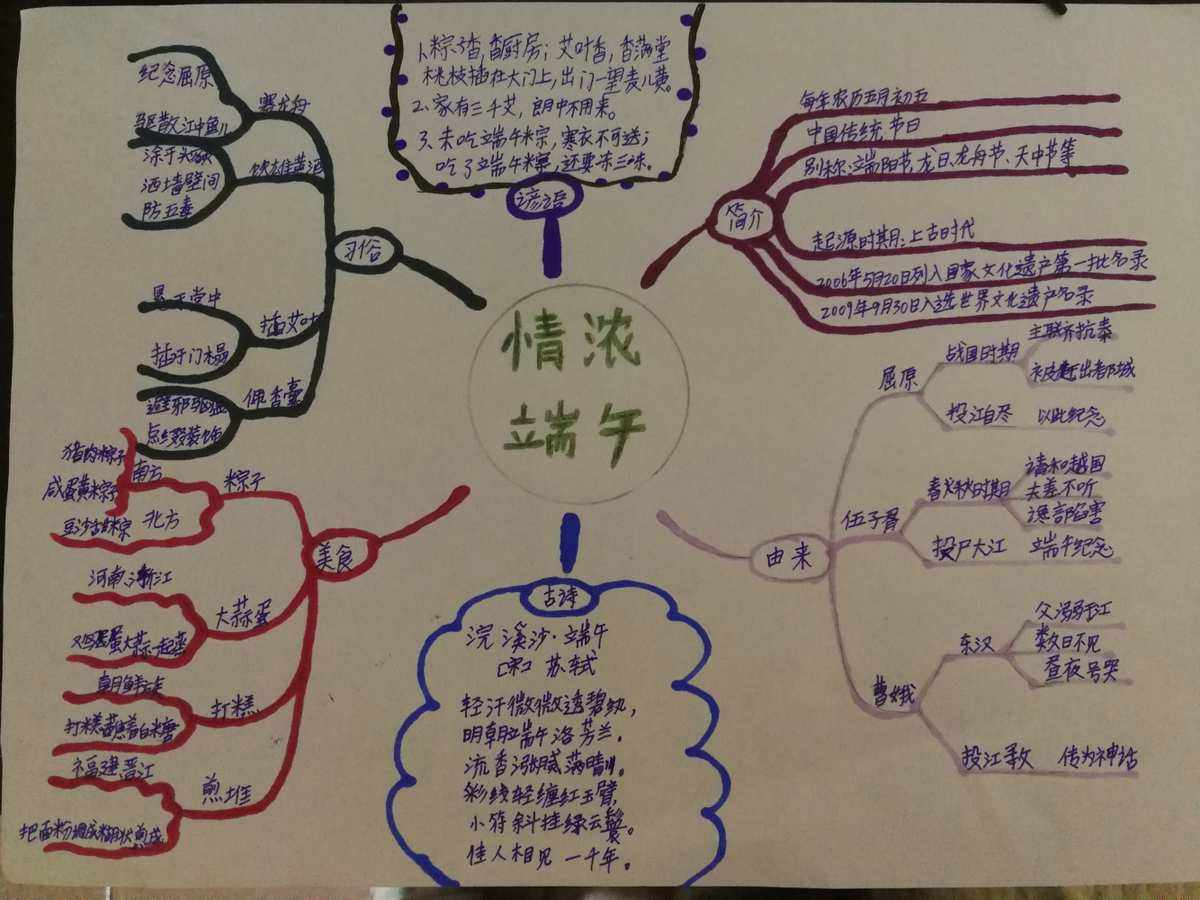 情浓
端午
谚语
1、粽子香,香厨房;艾叶香,香满堂
桃枝插在大门上,出门一望麦儿黄。
2、家有三千艾,郎中不用来。
3、未吃端午粽,寒衣不可送;
吃了端午粽,还要冻三冻。
简介
每年农历五月初五
中国传统节日
别称:端阳节、龙日、龙舟节、天中节等
起源时期:上古时代
2006年5月20日列入国家文化遗产第一批名录
2009年9月30日入选世界文化遗产名录
由来
屈原
战国时期
主联齐抗秦
被赶出都城
投江自尽 以此纪念
伍子胥
春秋时期
请和越国
夫差不听
谗言陷害
投尸大江 端午纪念
曹娥
东汉
父溺于江
数日不见
昼夜号哭
投江寻父 传为神话
古诗
浣溪沙·端午
[宋] 苏轼
轻汗微微透碧纨,
明朝端午浴芳兰。
流香涨腻满晴川。
彩线轻缠红玉臂,
小符斜挂绿云鬟。
佳人相见一千年。
美食
粽子
南方
猪肉粽子
咸蛋黄粽子
北方
大蒜蛋
河南、浙江
打糕
朝鲜族
煎堆
福建晋江
把面粉调成糊状煎成
习俗
赛龙舟
纪念屈原
驱散江中鱼儿
饮雄黄酒
洒墙壁间
防五毒
插艾叶
悬于堂中
插于门楣
佩香囊
避邪驱瘟
点缀装饰